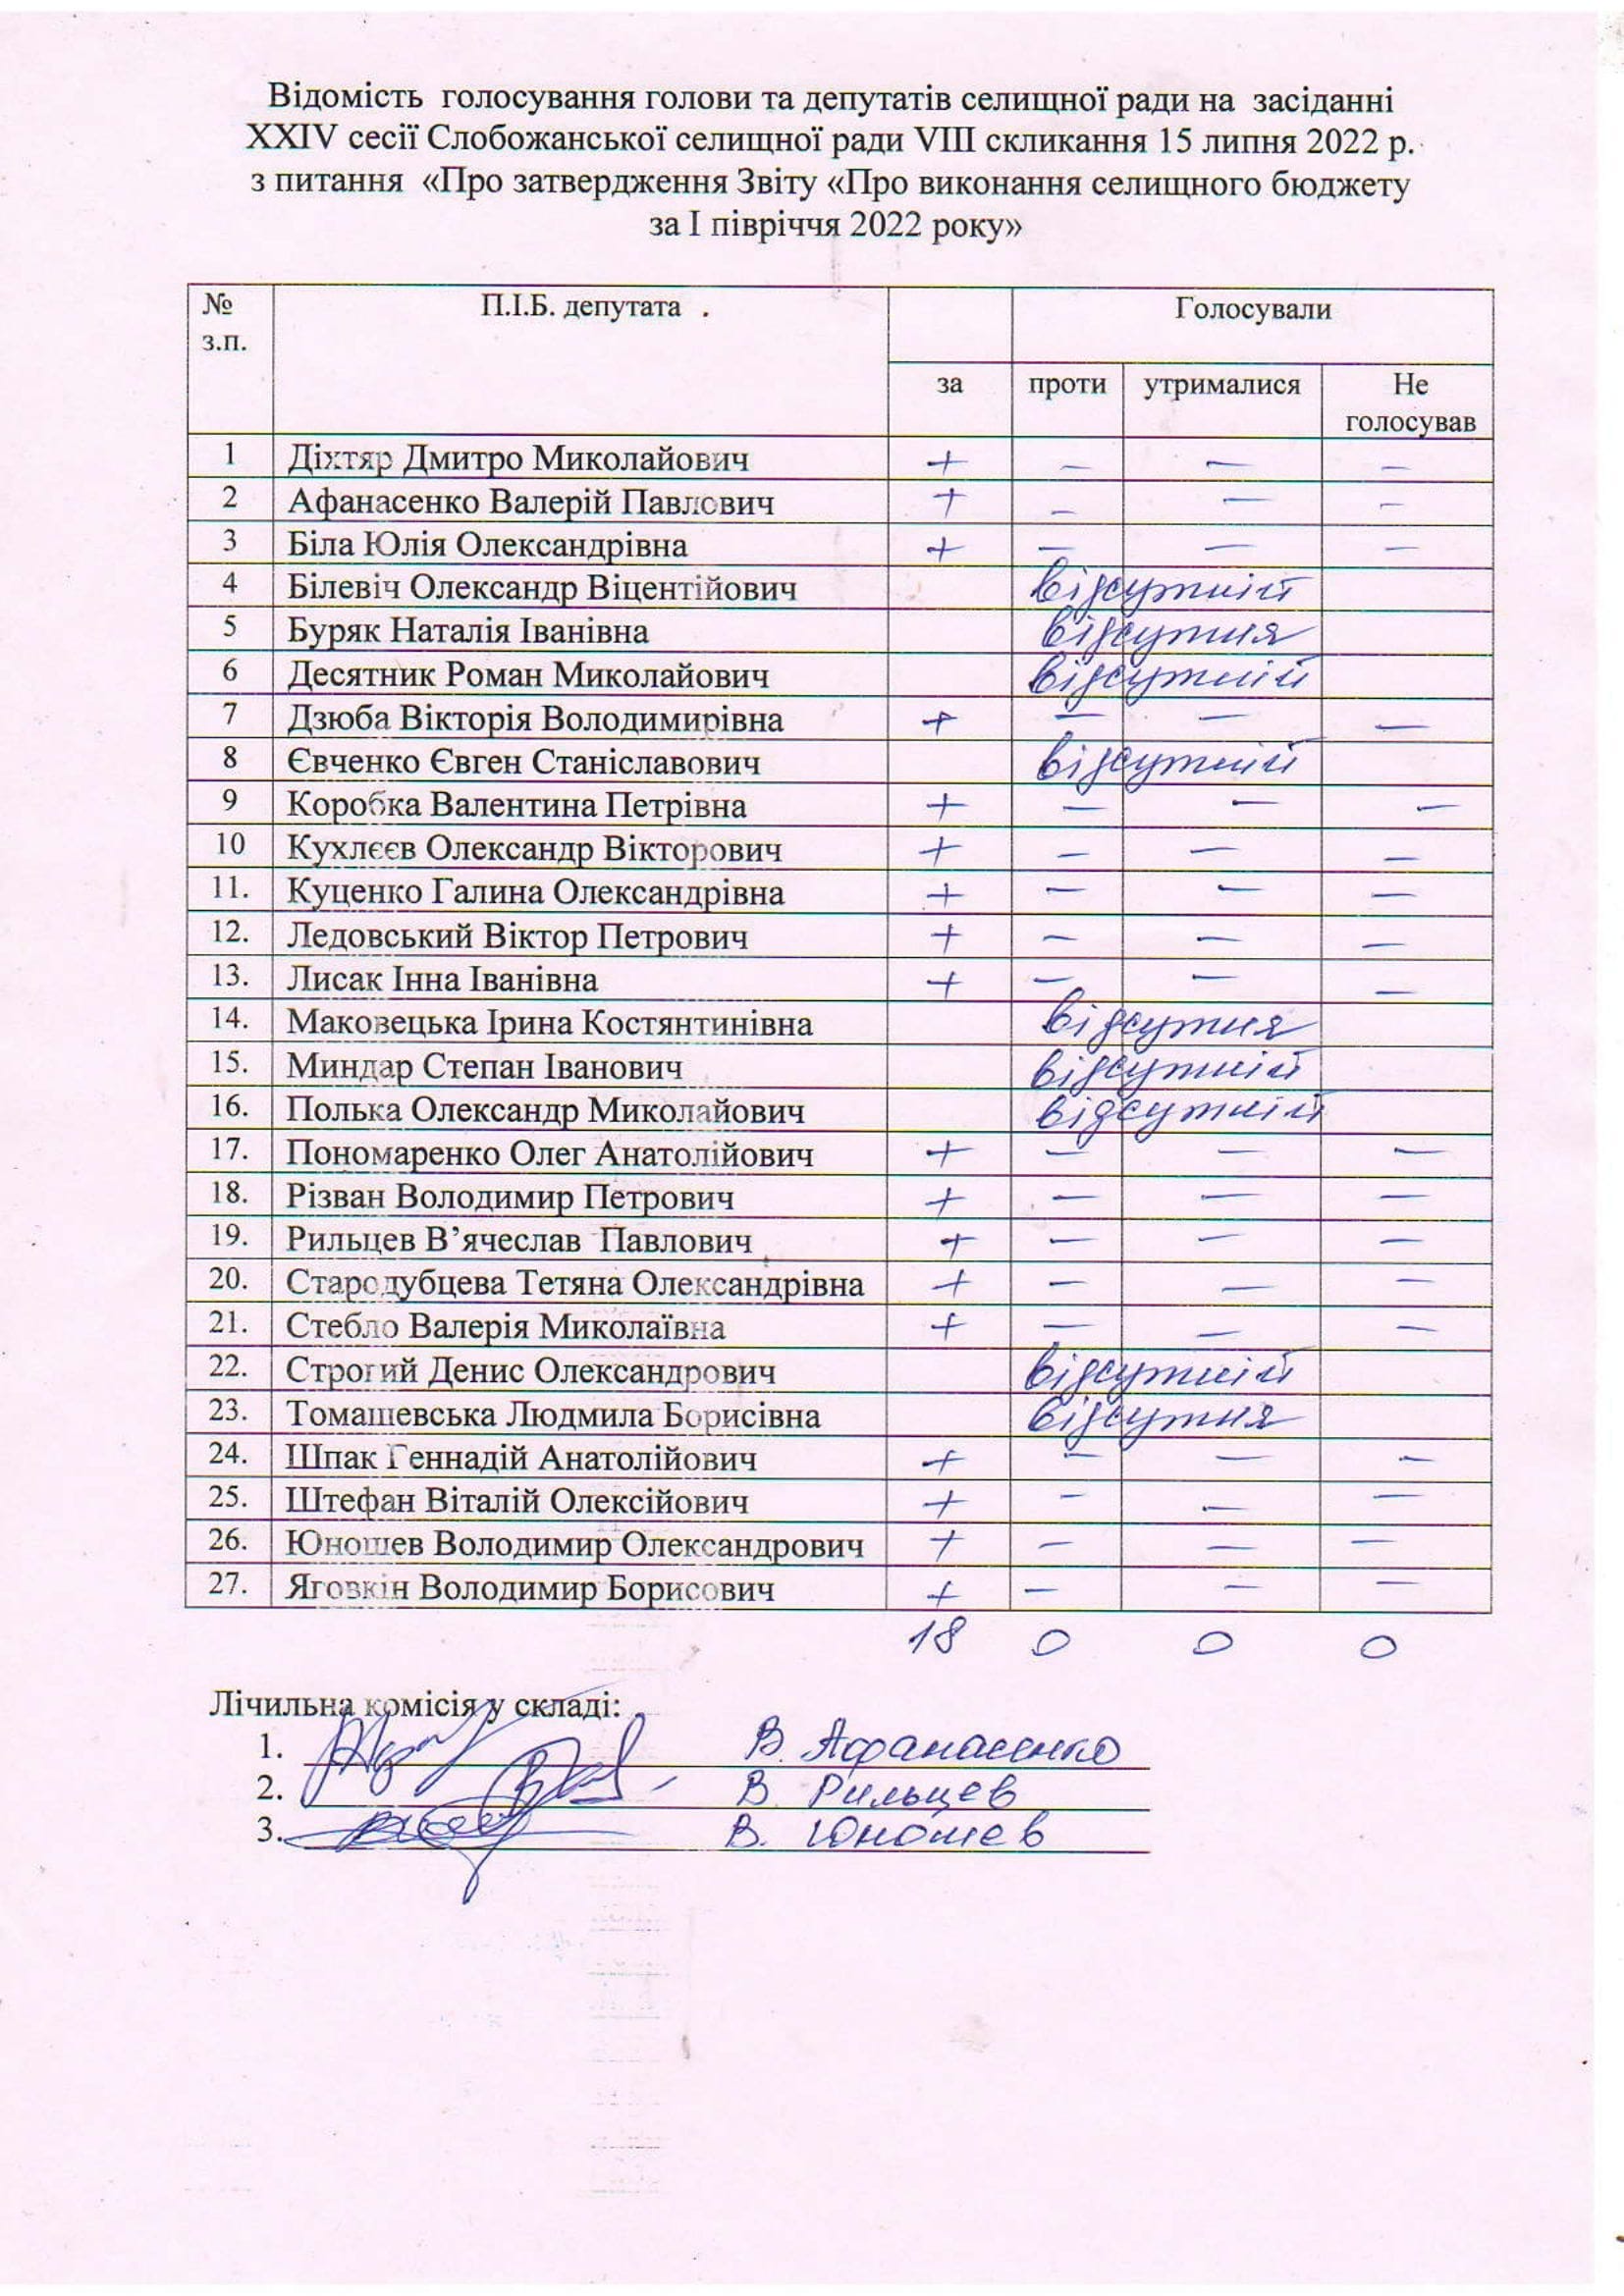 Відомість голосування голови та депутатів селищної ради на засіданні
XXIV сесії Слобожанської селищної ради VIII скликання 15 липня 2022 р.
з питання «Про затвердження Звіту «Про виконання селищного бюджету
за І півріччя 2022 року»
№ з.п. П.І.Б. депутата . Голосували
за проти утрималися Не голосував
1 Діхтяр Дмитро Миколайович + – – –
2 Афанасенко Валерій Павлович + – – –
3 Біла Юлія Олександрівна + – – –
4 Білевіч Олександр Віцентійович відсутній
5 Буряк Наталія Іванівна відсутня
6 Десятник Роман Миколайович відсутній
7 Дзюба Вікторія Володимирівна + – – –
8 Євченко Євген Станіславович відсутній
9 Коробка Валентина Петрівна + – – –
10 Кухлєєв Олександр Вікторович + – – –
11. Куценко Галина Олександрівна + – – –
12. Ледовський Віктор Петрович + – – –
13. Лисак Інна Іванівна + – – –
14. Маковецька Ірина Костянтинівна відсутня
15. Миндар Степан Іванович відсутній
16. Полька Олександр Миколайович відсутній
17. Пономаренко Олег Анатолійович + – – –
18. Різван Володимир Петрович + – – –
19. Рильцев В’ячеслав Павлович + – – –
20. Стародубцева Тетяна Олександрівна + – – –
21. Стебло Валерія Миколаївна + – – –
22. Строгий Денис Олександрович відсутній
23. Томашевська Людмила Борисівна відсутня
24. Шпак Геннадій Анатолійович + – – –
25. Штефан Віталій Олексійович + – – –
26. Юношев Володимир Олександрович + – – –
27. Яговкін Володимир Борисович + – – –
18 0 0 0
Лічильна комісія у складі:
1. В. Афанасенко
2. В Рильцев
3. В. Юношев